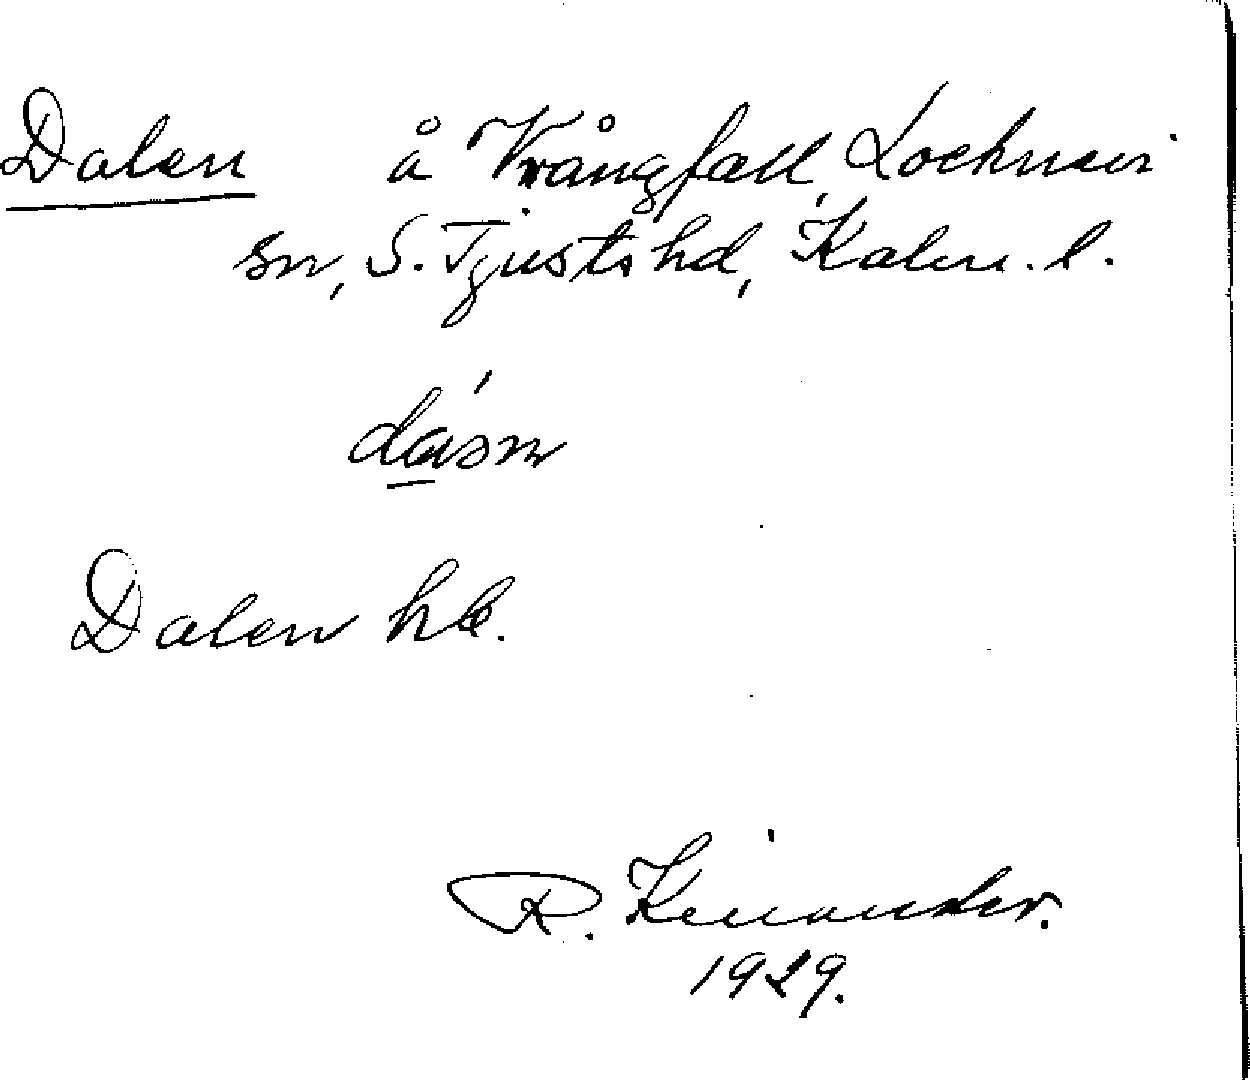 Dalen å Vrångfall, Locknevi
sn, S. Tjusts hd, Kalm. l.
Dalen hb.
R. Kinander.
1929.